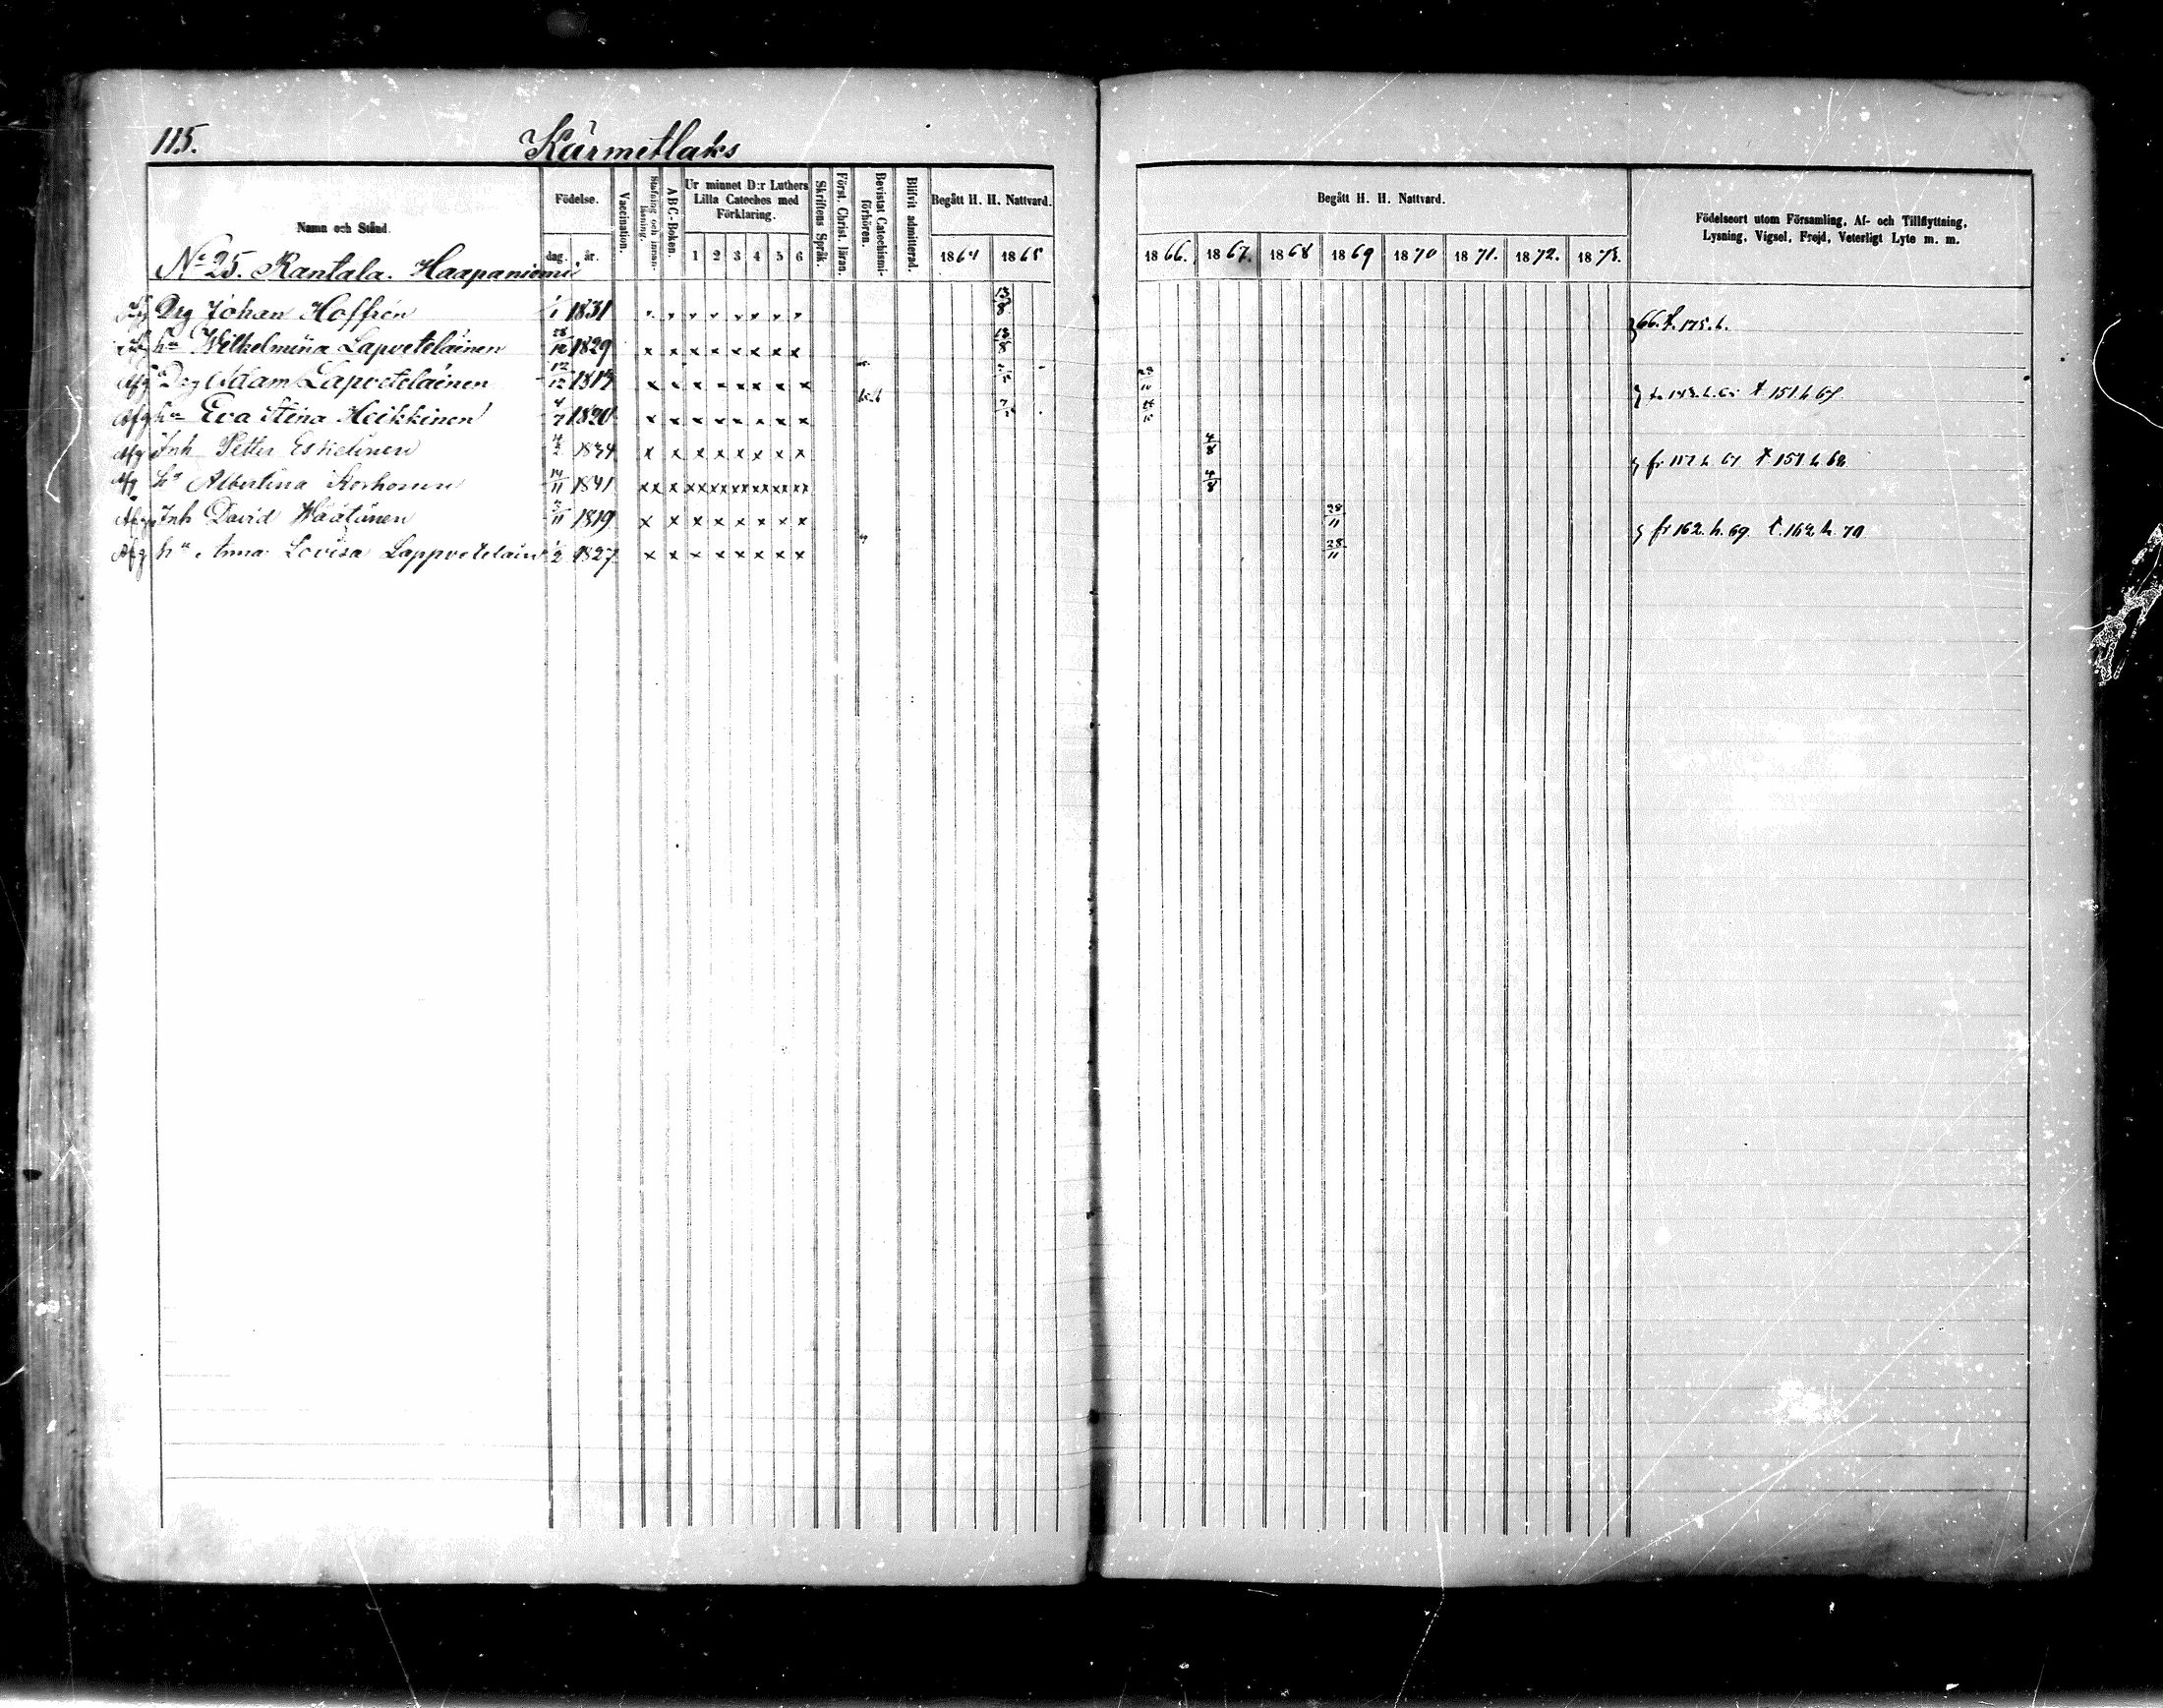 115.
Kärmetlaks
Namn och Stånd.
Födelse.
dag. år.
Vaccination.
Stafning och innan-läsning.
ABC-Boken.
Ur minnet D:r Luthers Lilla Cateches med Förklaring.
1 2 3 4 5 6
Skriftens Språk.
Först. Christ. läran.
Bevistat Catechismi-förhören.
Blifvit admitterad.
Begått H. H. Nattvard.
1864 1865
Begått H. H. Nattvard.
1866. 1867. 1868 1869 1870 1871. 1872. 1873.
Födelseort utom Församling, Af- och Tillflyttning,
Lysning, Vigsel, Frejd, Veterligt Lyte m. m.
No 25. Rantala. Haapaniemi
Drg Johan Hoffrén 1/1 1831 x x x x x x x x 13/8 66. t. 175. h.
hu Wilhelmina Lapveteläinen 1829 x x x x x x x x 13/8
Afg Drg Adam Lapveteläinen 12/12 x x x x x x x x t 151 h 67
Afg hu Eva Stina Heikkinen 4/7 1820 x x x x x x x x
Afg Inh Petter Eskelinen 1834 x x x x x x x x 4/8 t 151 h 68
Afg hu Albertina Korhonen 14/11 1841 xx x xx xx xx xx xx xx 4/8
Inh David Wäätänen 1819 x x x x x x x x 28/11 fr 162. h. 69. t. 162 h. 70
Afg hu Anna Lovisa Lappvetelain 1/2 1827 x x x x x x x x 28/11